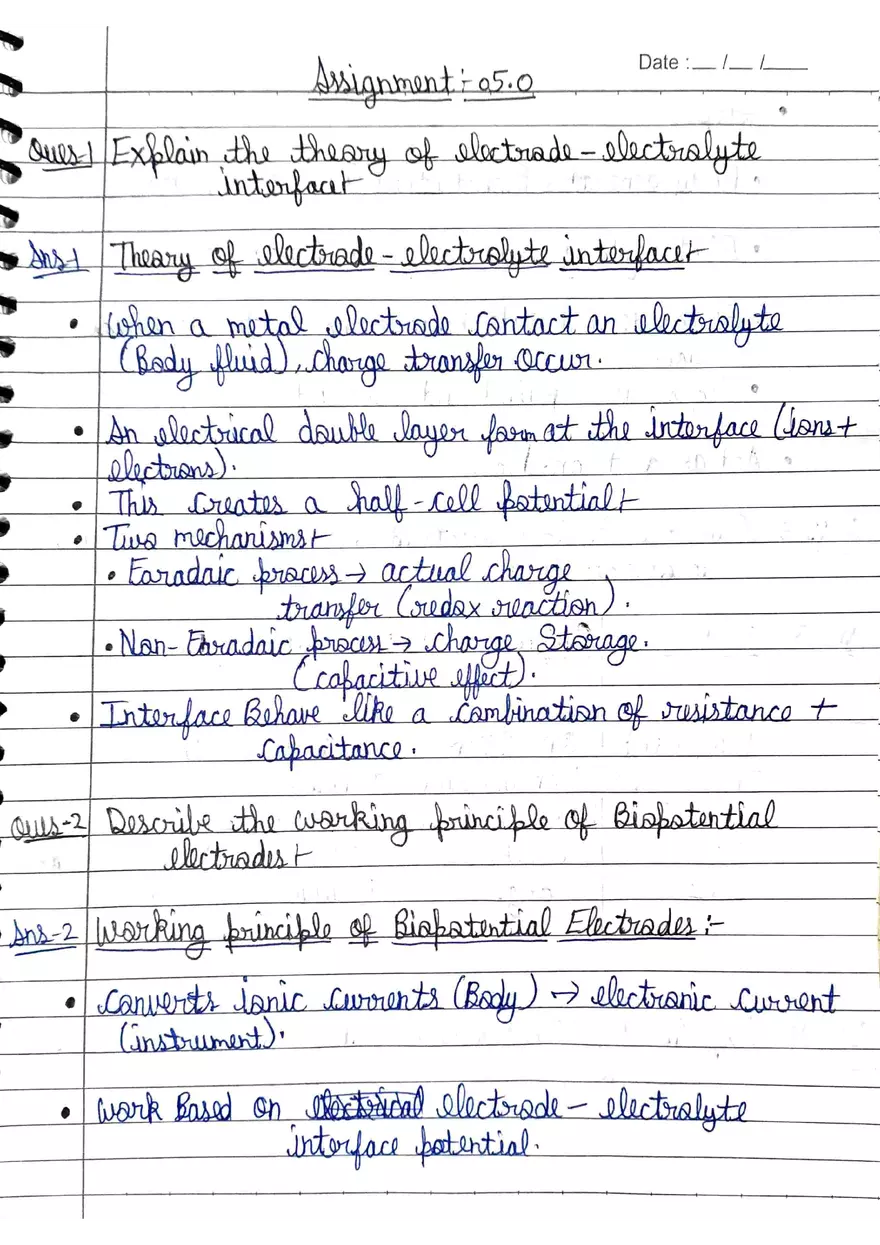 Date : __ /__ /____
Assignment :- 05.0
Ques-1 Explain the theory of electrode-electrolyte
interface:-
Ans-1 Theory of electrode-electrolyte interface:-
• When a metal electrode contact an electrolyte
(Body fluid), charge transfer occur.
• An electrical double layer form at the interface (ions +
electrons).
• This creates a half-cell potential:-
• Two mechanisms:-
• Faradaic process → actual charge
transfer (redox reaction).
• Non-Faradaic process → charge Storage.
(capacitive effect).
• Interface Behave like a combination of resistance +
capacitance.
Ques-2 Describe the working principle of Biopotential
electrodes:-
Ans-2 Working principle of Biopotential Electrodes :-
• converts ionic currents (Body) → electronic current
(instrument).
• work Based on electrode - electrolyte
interface potential.